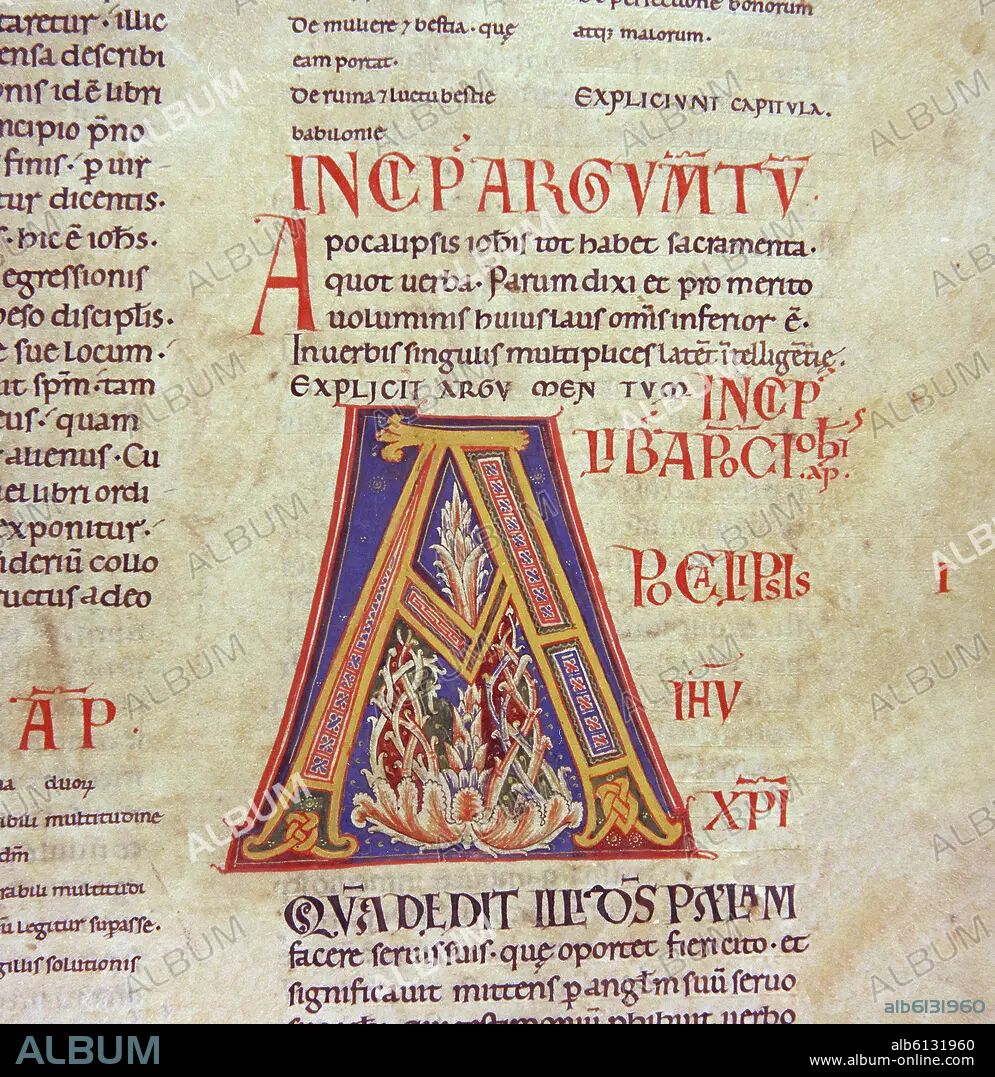 taretur · illic
ensa describi
onis id ē libri
ncipio p̄no
finis · ꝑ uir
tur dicentis ·
s · hic ē ioh̄s ·
egressionis
peso discipłis ·
e sue locum ·
ut sp̄m · tam
eus · quam
auenus · Cu
uel libri ordi
exponitur ·
deriū collo
ructus adeo
AP ·
duoꝝ
abili multitudine
dm̄
rabili multitudi
ū legitur supasse ·
gillis solutionis
De muliere ⁊ bestia · quę
eam portat ·
De ruina ⁊ luctu bestie
babilonie
De perfectione bonorum
atq; malorum ·
EXPLICIVNT CAPITVLA .
INCIP̄ ARGVM̄TV̄
Apocalipsis ioh̄is tot habet sacramenta ·
quot uerba · Parum dixi et pro merito
uoluminis huius laus om̄is inferior ē ·
In uerbis singulis multiplices latēt ītelligētię ·
EXPLICIT ARGVMENTVM
INCIP̄
LIB̄ APOC̄ IOH̄IS
AP̄ .
A
POCALIPSIS
I
IH̄V
XP̄I
QVĀ DEDIT ILLI D̄S PALAM
facere seruis suis · quę oportet fieri cito · et
significauit mittens ꝑ angł̄m suū seruo
uerbo
ALBUM
alb6131960
ALBUM
alb6131960
www.album-online.com